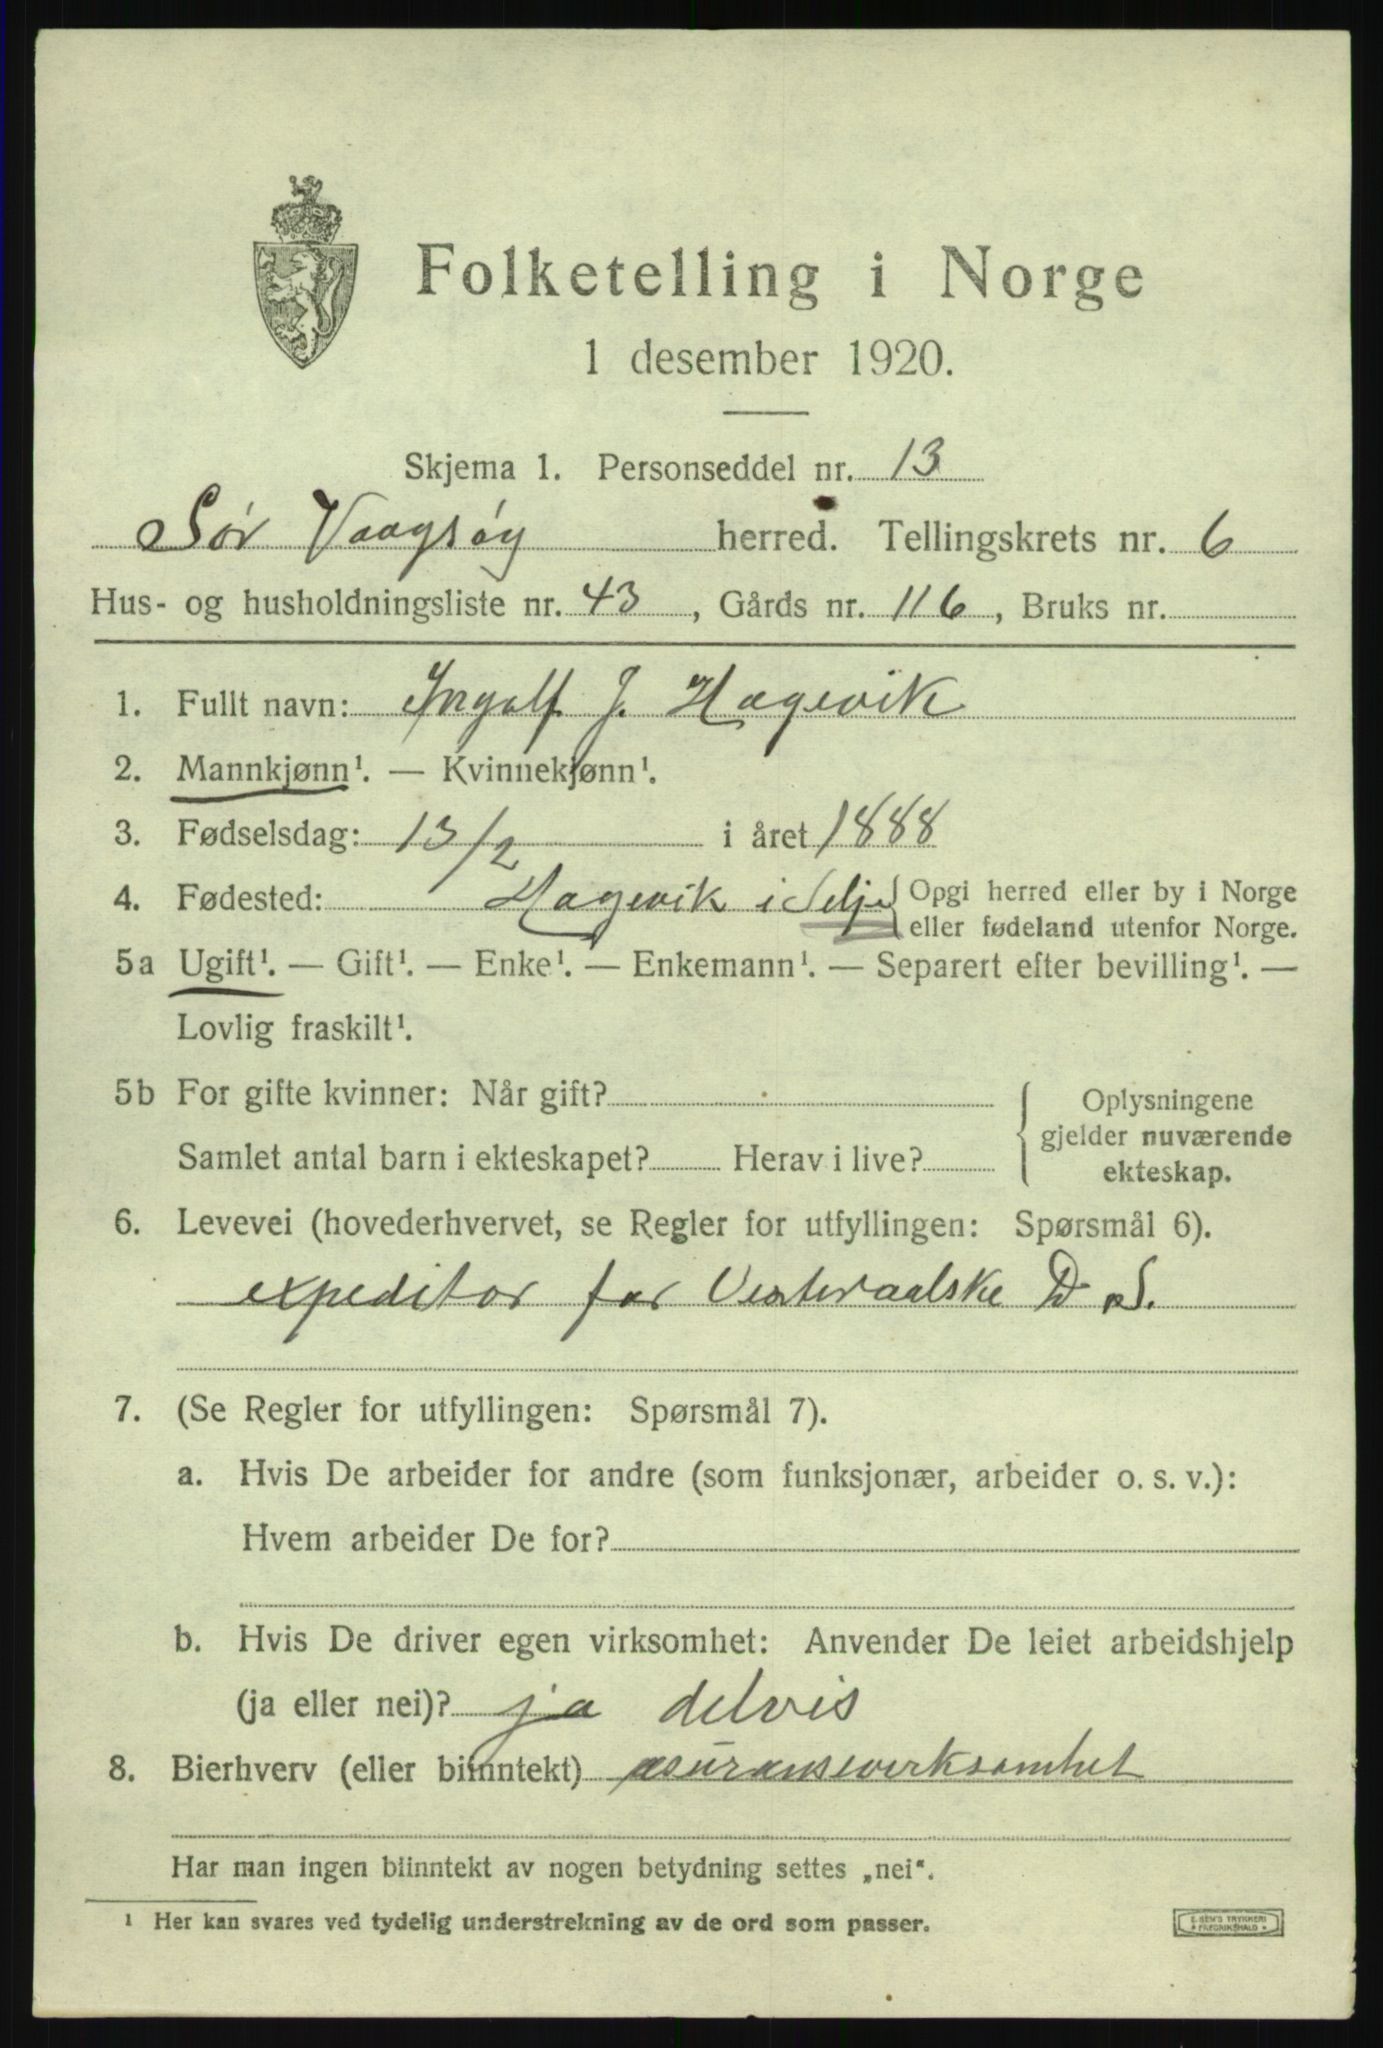 Folketelling i Norge
1 desember 1920.
Skjema 1. Personseddel nr. 13
Sør Vaagsøy herred. Tellingskrets nr. 6
Hus- og husholdningsliste nr. 43, Gårds nr. 116, Bruks nr.
1. Fullt navn: Ingolf J. Hagevik
2. Mannkjønn¹. — Kvinnekjønn¹.
3. Fødselsdag: 13/2 i året 1888
4. Fødested: Hagevik i Selje { Opgi herred eller by i Norge
eller fødeland utenfor Norge.
5a Ugift¹. — Gift¹. — Enke¹. — Enkemann¹. — Separert efter bevilling¹. —
Lovlig fraskilt¹.
5b For gifte kvinner: Når gift?
Samlet antal barn i ekteskapet? Herav i live?
{ Oplysningene
gjelder nuværende
ekteskap.
6. Levevei (hovederhvervet, se Regler for utfyllingen: Spørsmål 6).
expeditør for Vesteraalske D.S.
7. (Se Regler for utfyllingen: Spørsmål 7).
a. Hvis De arbeider for andre (som funksjonær, arbeider o. s. v.):
Hvem arbeider De for?
b. Hvis De driver egen virksomhet: Anvender De leiet arbeidshjelp
(ja eller nei)? ja delvis
8. Bierhverv (eller biinntekt) asuransevirksomhet
Har man ingen biinntekt av nogen betydning settes „nei“.
¹ Her kan svares ved tydelig understrekning av de ord som passer.
E. SEM'S TRYKKERI
• FREDRIKSHALD •